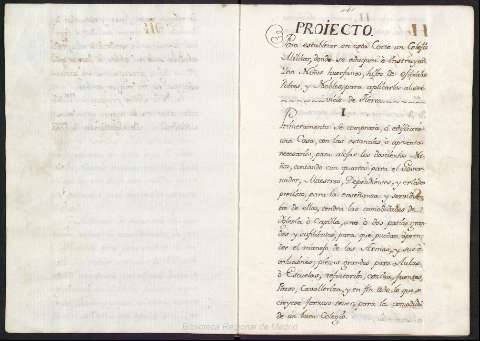 PROIECTO.
Para establecer en esta Corte un Colegio
Militar, donde se eduquen e Instruyan
Niños huerfanos, hijos de oficiales
Pobres, y Nobles, para aplicarlos al servi-
cio
I
Primeramente se comprará, ó edificará
una Casa, con las estancias, ó aposentos
necesarios, para alojar los Niños
, contando con quartos para el Gover-
nador, Maestros, Dependientes, y criados
precisos, para la enseñanza y servidum-
bre de ellos, tendrá las comodidades de
Iglesia ó Capilla, uno ó dos patios gran-
des y capaces, para que puedan apren-
der el manejo de las Armas, y sus e-
voluciones, piezas grandes para Aulas,
ó Escuelas, refectorio, cocina, fuentes,
Pozos, Cavalleriza, y en fin todo lo que se
creyese forzoso tener, para la comodidad
de un buen Colegio.
Biblioteca Regional de Madrid